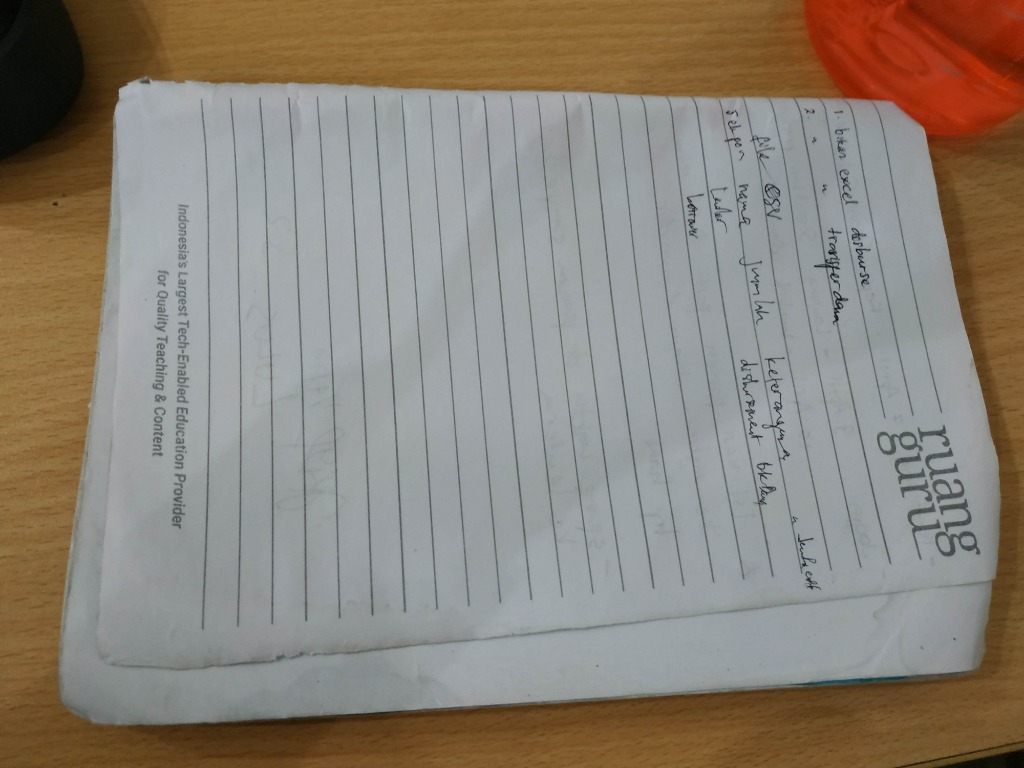 ruang
guru
1. bikin excel disburse
2. " " transfer dana
file CSV
telpon nama jumlah keterangan
Lender disbursement
borrower
Indonesia's Largest Tech-Enabled Education Provider
for Quality Teaching & Content